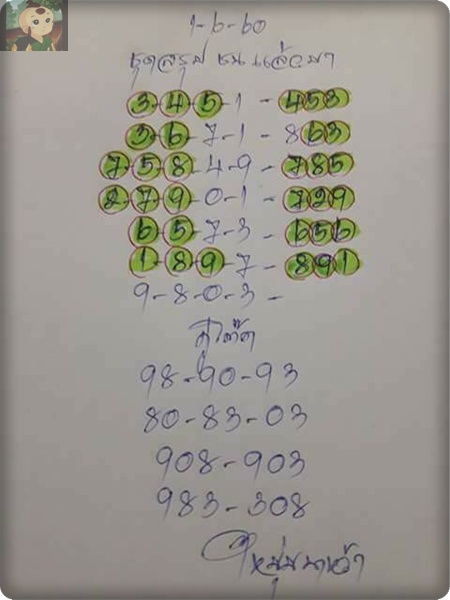 1-6-60
ชุดสรุป ชน แล้วมา
3-4-5-1 - 453
3-6-7-1 - 863
7-5-8-4-9 - 785
2-7-9-0-1 - 729
6-5-7-3 - 656
1-8-9-7 - 891
9-8-0-3 -
คู่โต๊ด
98-90-93
80-83-03
908-903
983-308